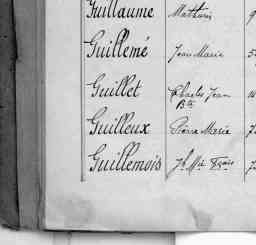 Guillaume Mathurin
Guillemé Jean Marie
Guillet Charles Jean
Bte
Guilleux Pierre Marie
Guillemois Jh Mie Fçois